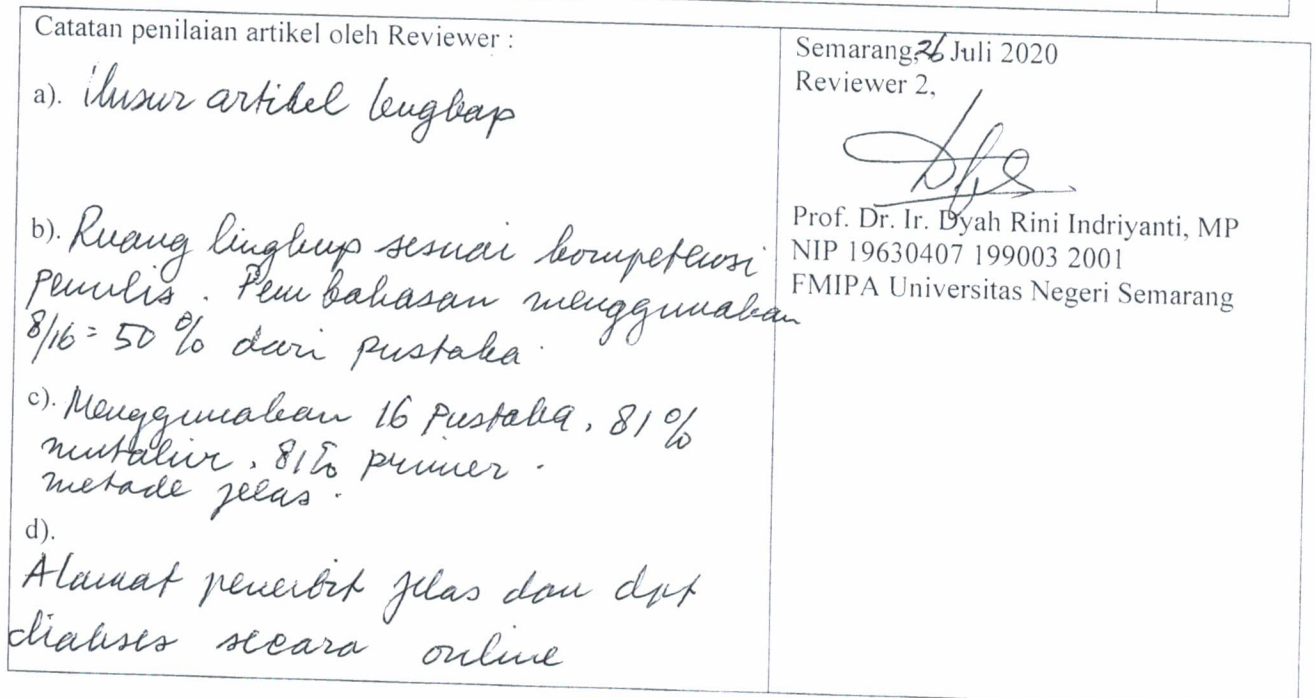 Catatan penilaian artikel oleh Reviewer :
a). Unsur artikel lengkap
b). Ruang lingkup sesuai kompetensi
penulis. Pembahasan menggunakan
8/16 = 50 % dari pustaka.
c). Menggunakan 16 pustaka, 81 %
mutakhir, 81% primer.
metode jelas.
d).
Alamat penerbit jelas dan dpt
diakses secara online
Semarang, 26 Juli 2020
Reviewer 2,
Prof. Dr. Ir. Dyah Rini Indriyanti, MP
NIP 19630407 199003 2001
FMIPA Universitas Negeri Semarang